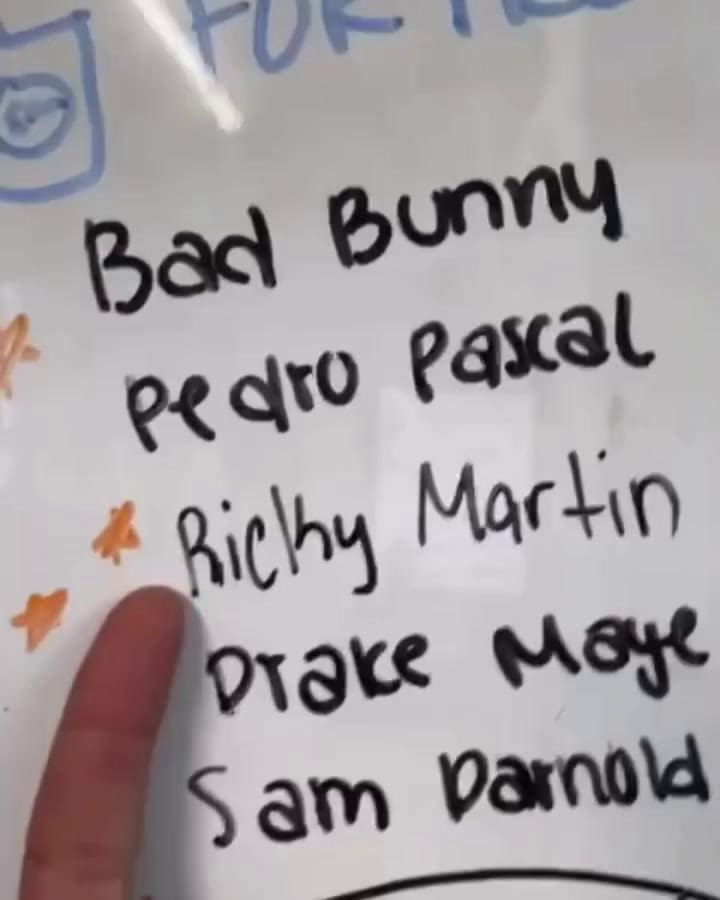 FOR
Bad Bunny
Pedro Pascal
Ricky Martin
Drake Maye
Sam Darnold